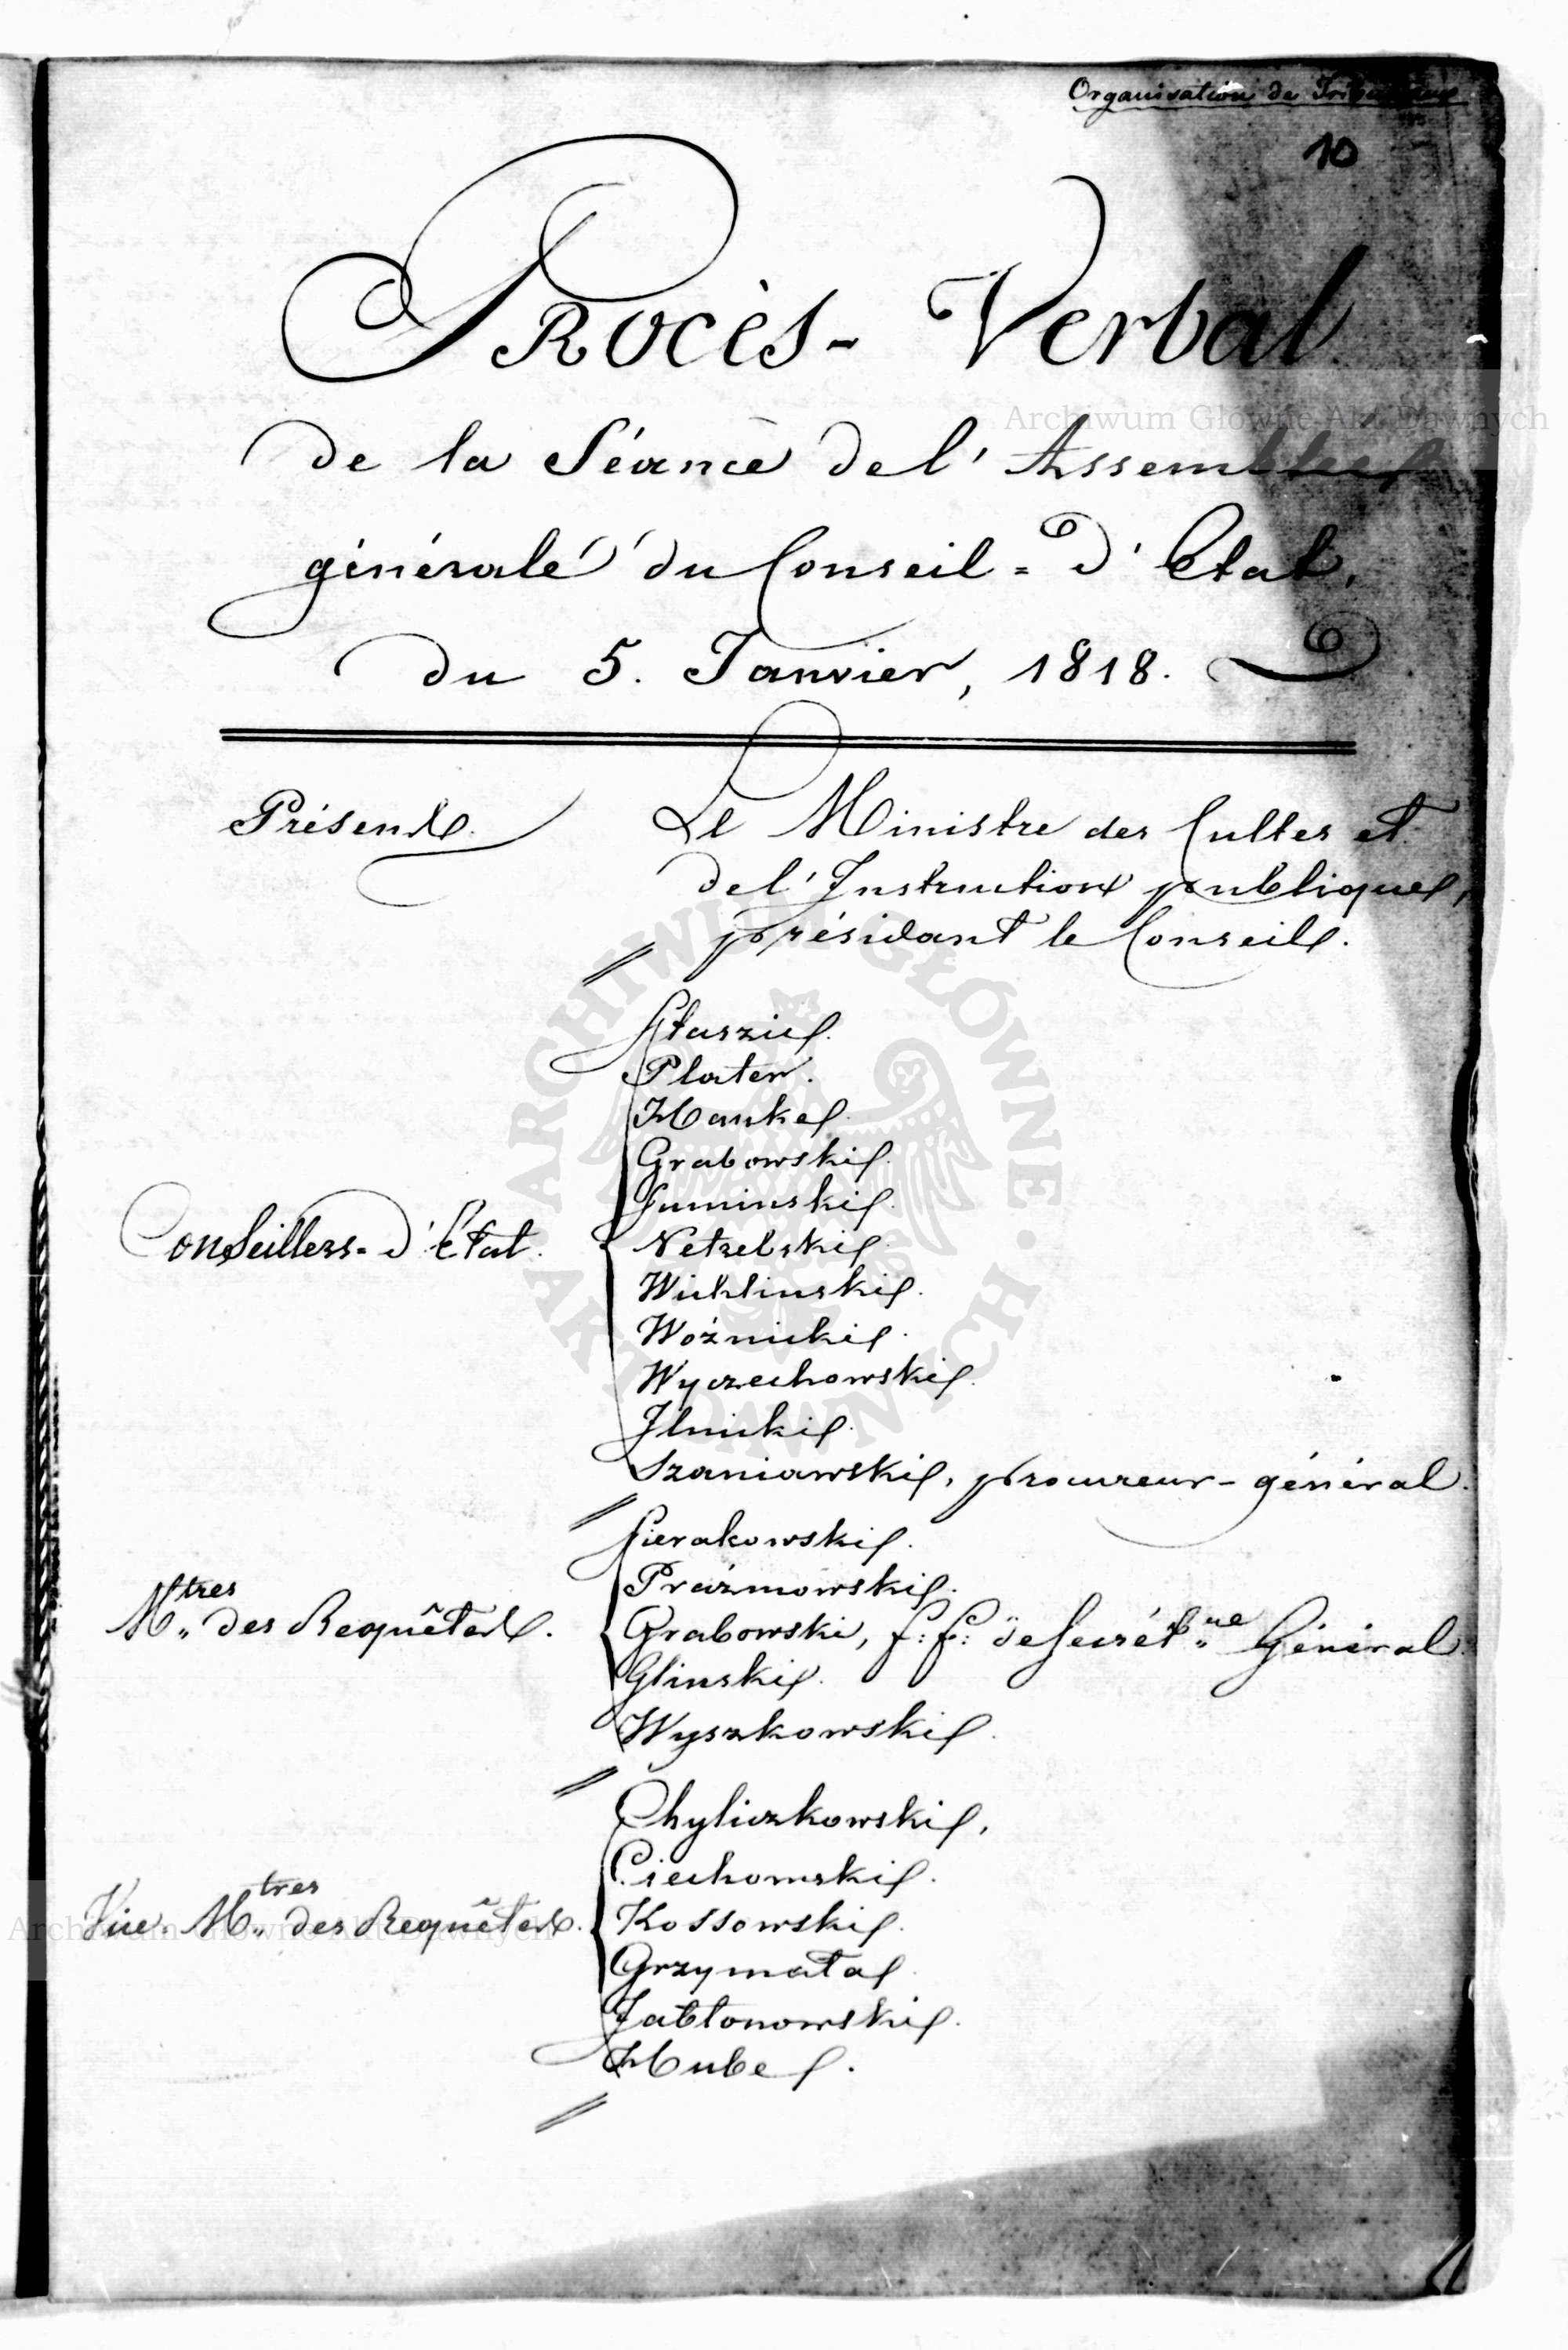 Organisation de Tribunaux
10
Procès-Verbal
de la Séance de l'Assemblée
générale du Conseil-d'Etat,
du 5. Janvier, 1818.
Présens.
Le Ministre des Cultes et
de l'Instruction publique,
présidant le Conseil.
Conseillers-d'État.
Staszic.
Plater.
Hauke.
Grabowski.
Suminski.
Netrebski.
Wichlinski.
Woźnicki.
Wyczechowski.
Ilnicki.
Szaniawski, procureur-général.
Mtres des Requêtes.
Sierakowski.
Prażmowski.
Grabowski, f: f: de Secrétre Général.
Glinski.
Wyszkowski.
Vice-Mtres des Requêtes.
Chyliczkowski,
Ciechomski.
Kossowski.
Grzymała.
Jabłonowski.
Hube.
Archiwum Główne Akt Dawnych
ARCHIWUM GŁÓWNE · AKT DAWNYCH ·
Archiwum Główne Akt Dawnych